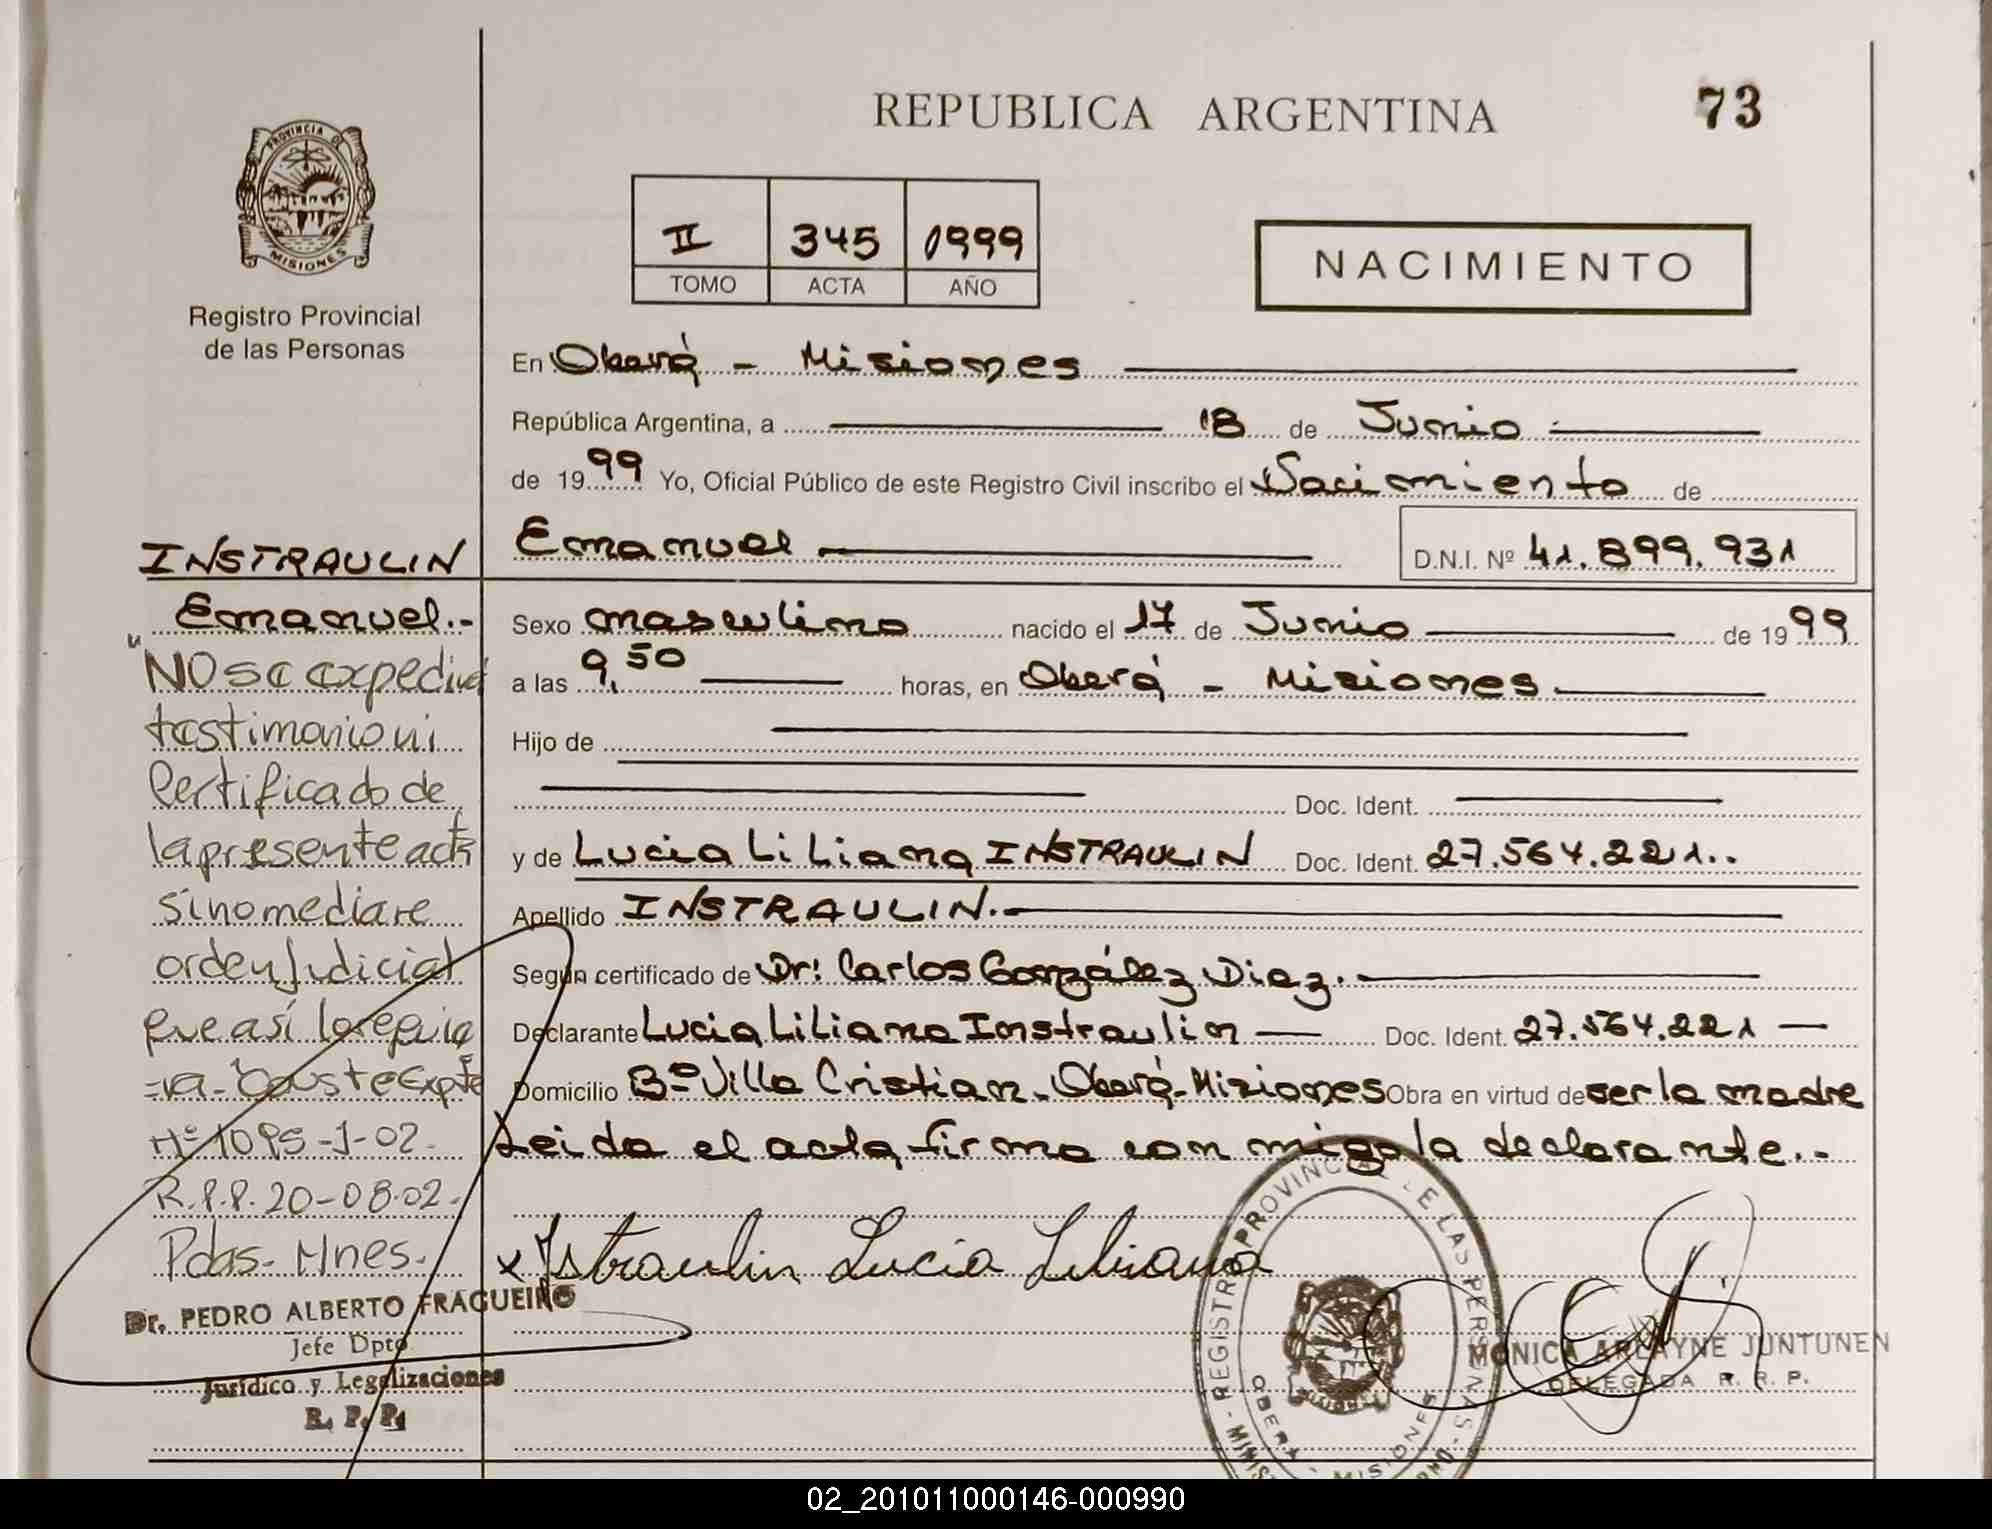 REPUBLICA ARGENTINA
73
PROVINCIA DE
MISIONES
Registro Provincial
de las Personas
II 345 1999
TOMO ACTA AÑO
NACIMIENTO
En Oberá - Misiones
República Argentina, a 18 de Junio
de 1999 Yo, Oficial Público de este Registro Civil inscribo el Nacimiento de
Emanuel D.N.I. Nº 41.899.931
Sexo masculino nacido el 17 de Junio de 1999
a las 9,50 horas, en Oberá - Misiones
Hijo de
Doc. Ident.
y de Lucia Liliana INSTRAULIN Doc. Ident. 27.564.221..
Apellido INSTRAULIN.-
Según certificado de Dr: Carlos González Diaz.
Declarante Lucia Liliana Instraulin Doc. Ident. 27.564.221
Domicilio Bº Villa Cristian - Oberá - Misiones Obra en virtud de ser la madre
Leida el acta firma con migo la declarante.-
x Istraulin Lucia Liliana
INSTRAULIN
Emanuel.-
"NO se expedirá
testimonio ni
Certificado de
la presente acta
sino mediare
orden judicial
que así lo requie
=ra- Conste Expte
Nº 1095-J-02-
R.P.P. 20-08-02-
Pdas- Mnes-
Dr. PEDRO ALBERTO FRAGUEIRO
Jefe Dpto
Jurídico y Legalizaciones
R. P. P.
REGISTRO PROVINCIAL DE LAS PERSONAS
OBERA - MISIONES
MONICA ARLAYNE JUNTUNEN
DELEGADA R. R. P.
02_201011000146-000990